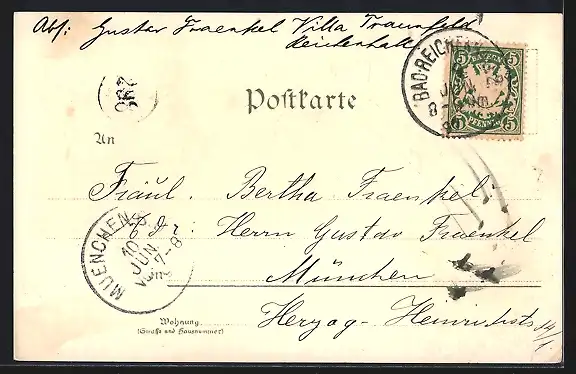 Abs: Gustav Fraenkel Villa Traunfeld
Reichenhall
BAD-REICHENHALL
JUN
BAYERN
5 5
5 PFENNIG 5
Postkarte
An
Fräul. Bertha Fraenkel
Adr: Herrn Gustav Fraenkel
München
Herzog-Heinrichstr 14/1
MUENCHEN
10
JUN.
7-8
Wohnung
(Straße und Hausnummer)